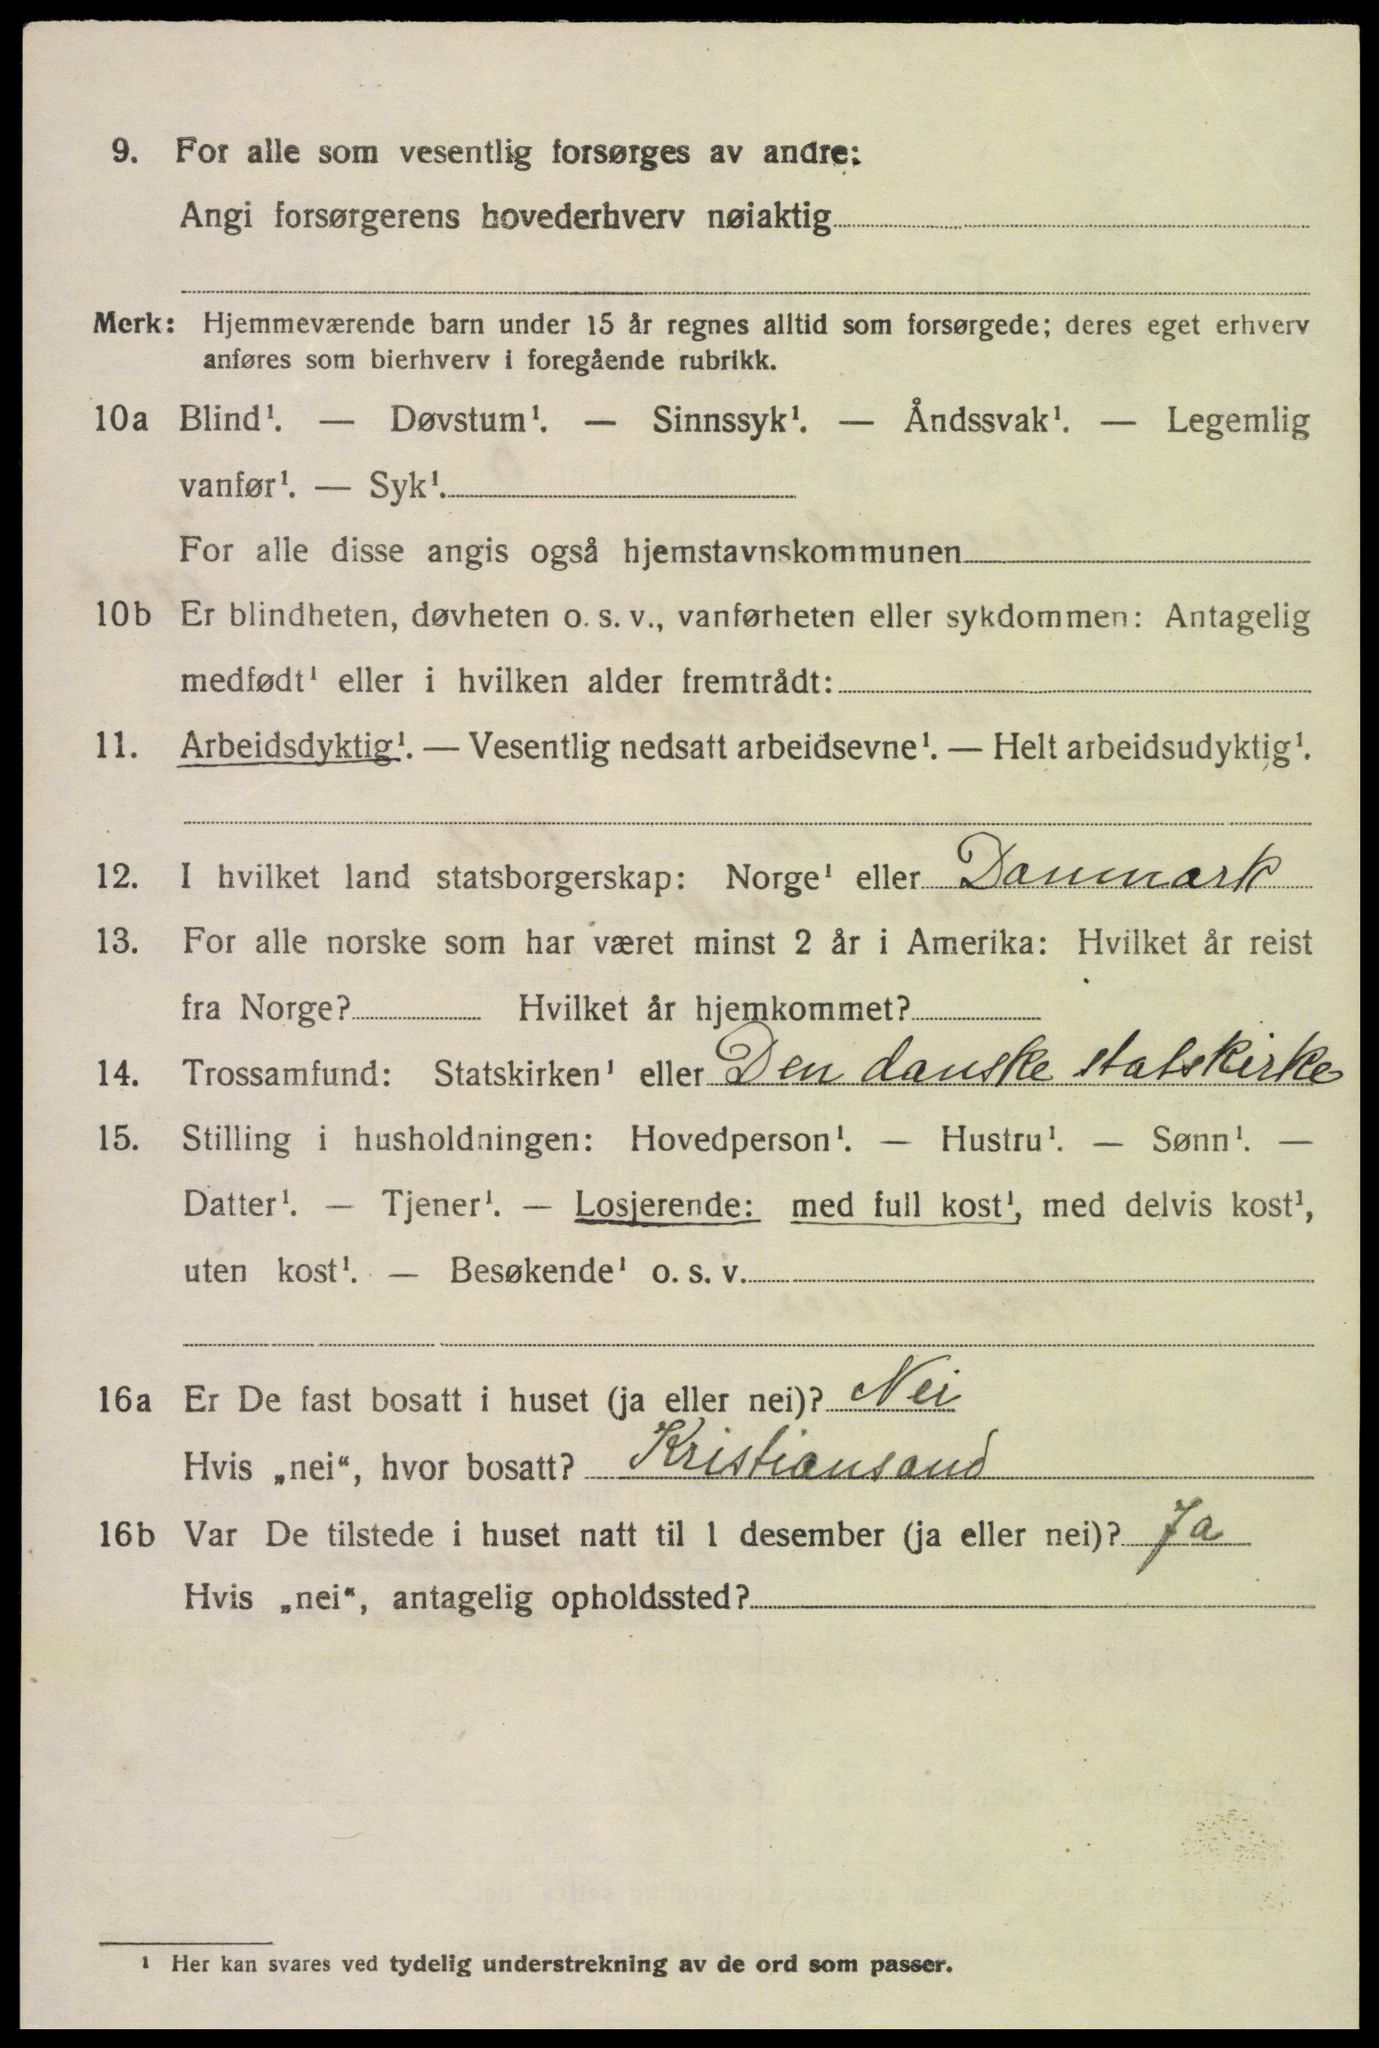 9. For alle som vesentlig forsørges av andre:
Angi forsørgerens hovederhverv nøiaktig
Merk: Hjemmeværende barn under 15 år regnes alltid som forsørgede; deres eget erhverv
anføres som bierhverv i foregående rubrikk.
10a Blind¹. — Døvstum¹. — Sinnssyk¹. — Åndssvak¹. — Legemlig
vanfør¹. — Syk¹.
For alle disse angis også hjemstavnskommunen
10b Er blindheten, døvheten o. s. v., vanførheten eller sykdommen: Antagelig
medfødt¹ eller i hvilken alder fremtrådt:
11. Arbeidsdyktig¹. — Vesentlig nedsatt arbeidsevne¹. — Helt arbeidsudyktig¹.
12. I hvilket land statsborgerskap: Norge¹ eller Danmark
13. For alle norske som har været minst 2 år i Amerika: Hvilket år reist
fra Norge? Hvilket år hjemkommet?
14. Trossamfund: Statskirken¹ eller Den danske statskirke
15. Stilling i husholdningen: Hovedperson¹. — Hustru¹. — Sønn¹. —
Datter¹. — Tjener¹. — Losjerende: med full kost¹, med delvis kost¹,
uten kost¹. — Besøkende¹ o. s. v.
16a Er De fast bosatt i huset (ja eller nei)? Nei
Hvis „nei“, hvor bosatt? Kristiansand
16b Var De tilstede i huset natt til 1 desember (ja eller nei)? Ja
Hvis „nei“, antagelig opholdssted?
¹ Her kan svares ved tydelig understrekning av de ord som passer.